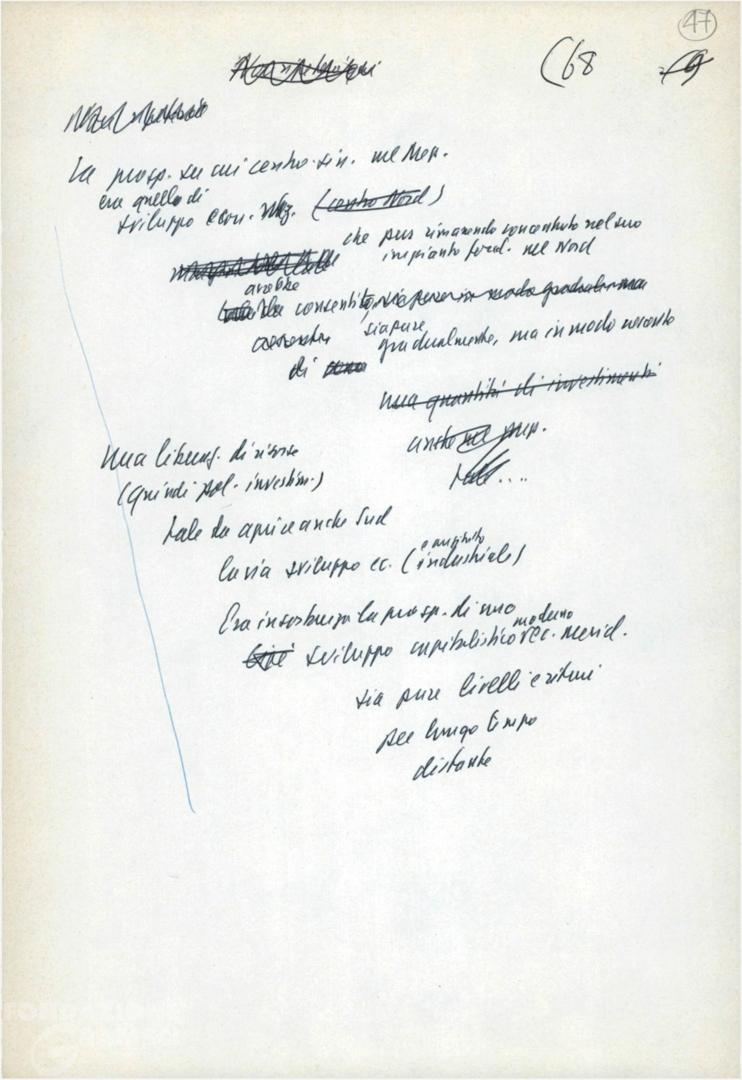 47
(68
La prosp. su cui centro-sin. nel Mer.
era quella di
sviluppo econ. (centro Nord)
che pur rimanendo concentrato nel suo
impianto fond. nel Nord
avrebbe
consentito, sia pure in modo graduale ma
crescente sia pure
gradualmente, ma in modo
di
una quantità di investimenti
anche nel mer.
tale....
una liberaz. di risorse
(quindi pol. investim.)
tale da aprire anche Sud
la via sviluppo ec. (e anzitutto industriale)
Era insomma la prosp. di uno
cioè sviluppo capitalistico moderno ec. merid.
sia pure livelli e ritmi
per lungo tempo
distante
FONDAZIONE
GRAMSCI